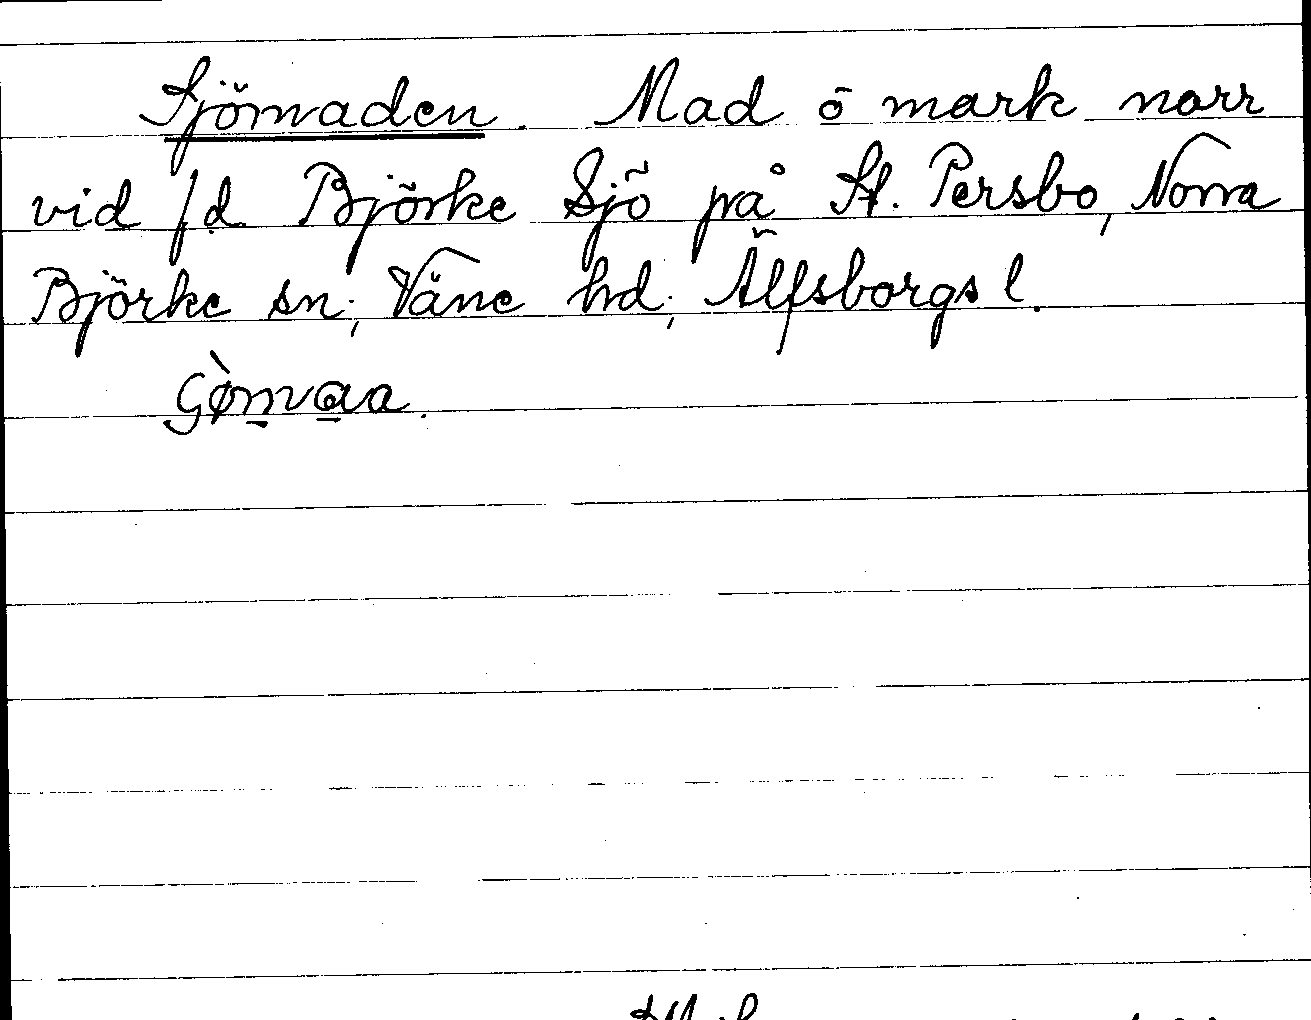 Sjömaden. Mad o mark norr
vid f.d. Björke Sjö på St. Persbo, Norra
Björke sn; Väne hd; Älfsborgs l.